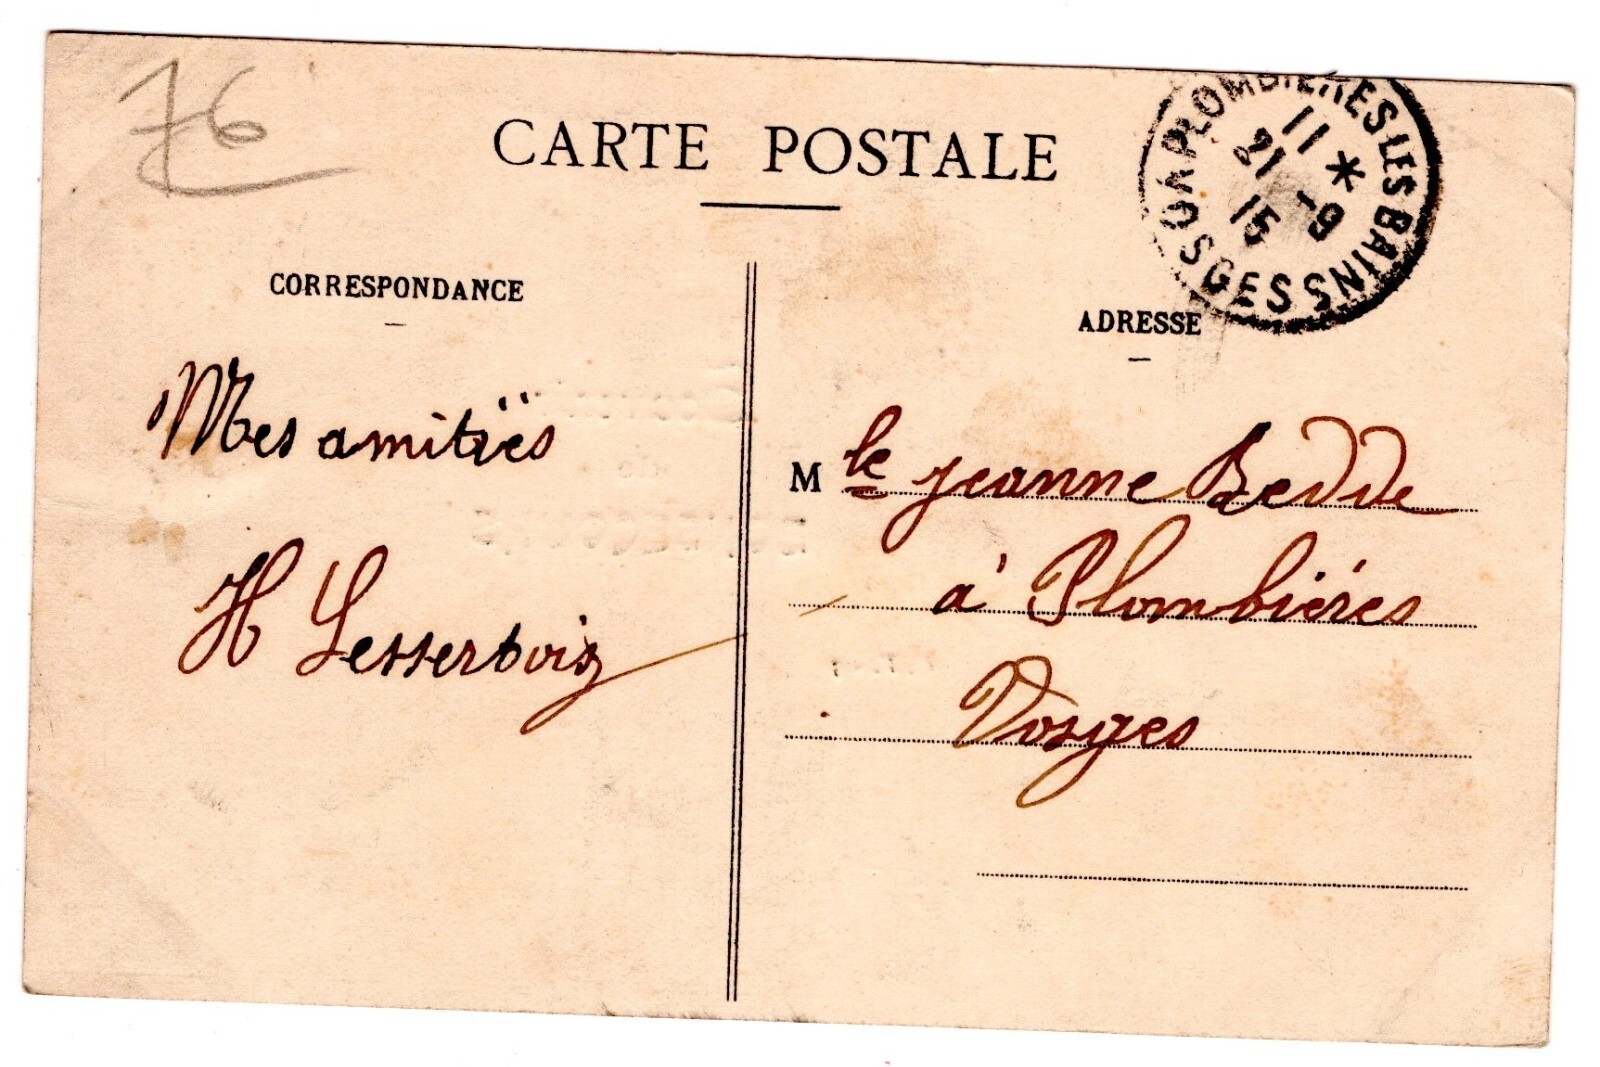 76
CARTE POSTALE
PLOMBIERES LES BAINS
11 *
21 -9
15
VOSGES
CORRESPONDANCE
ADRESSE
Mes amitiés
H Lesserboiz
M lle jeanne Bedde
à Plombiéres
Vosges